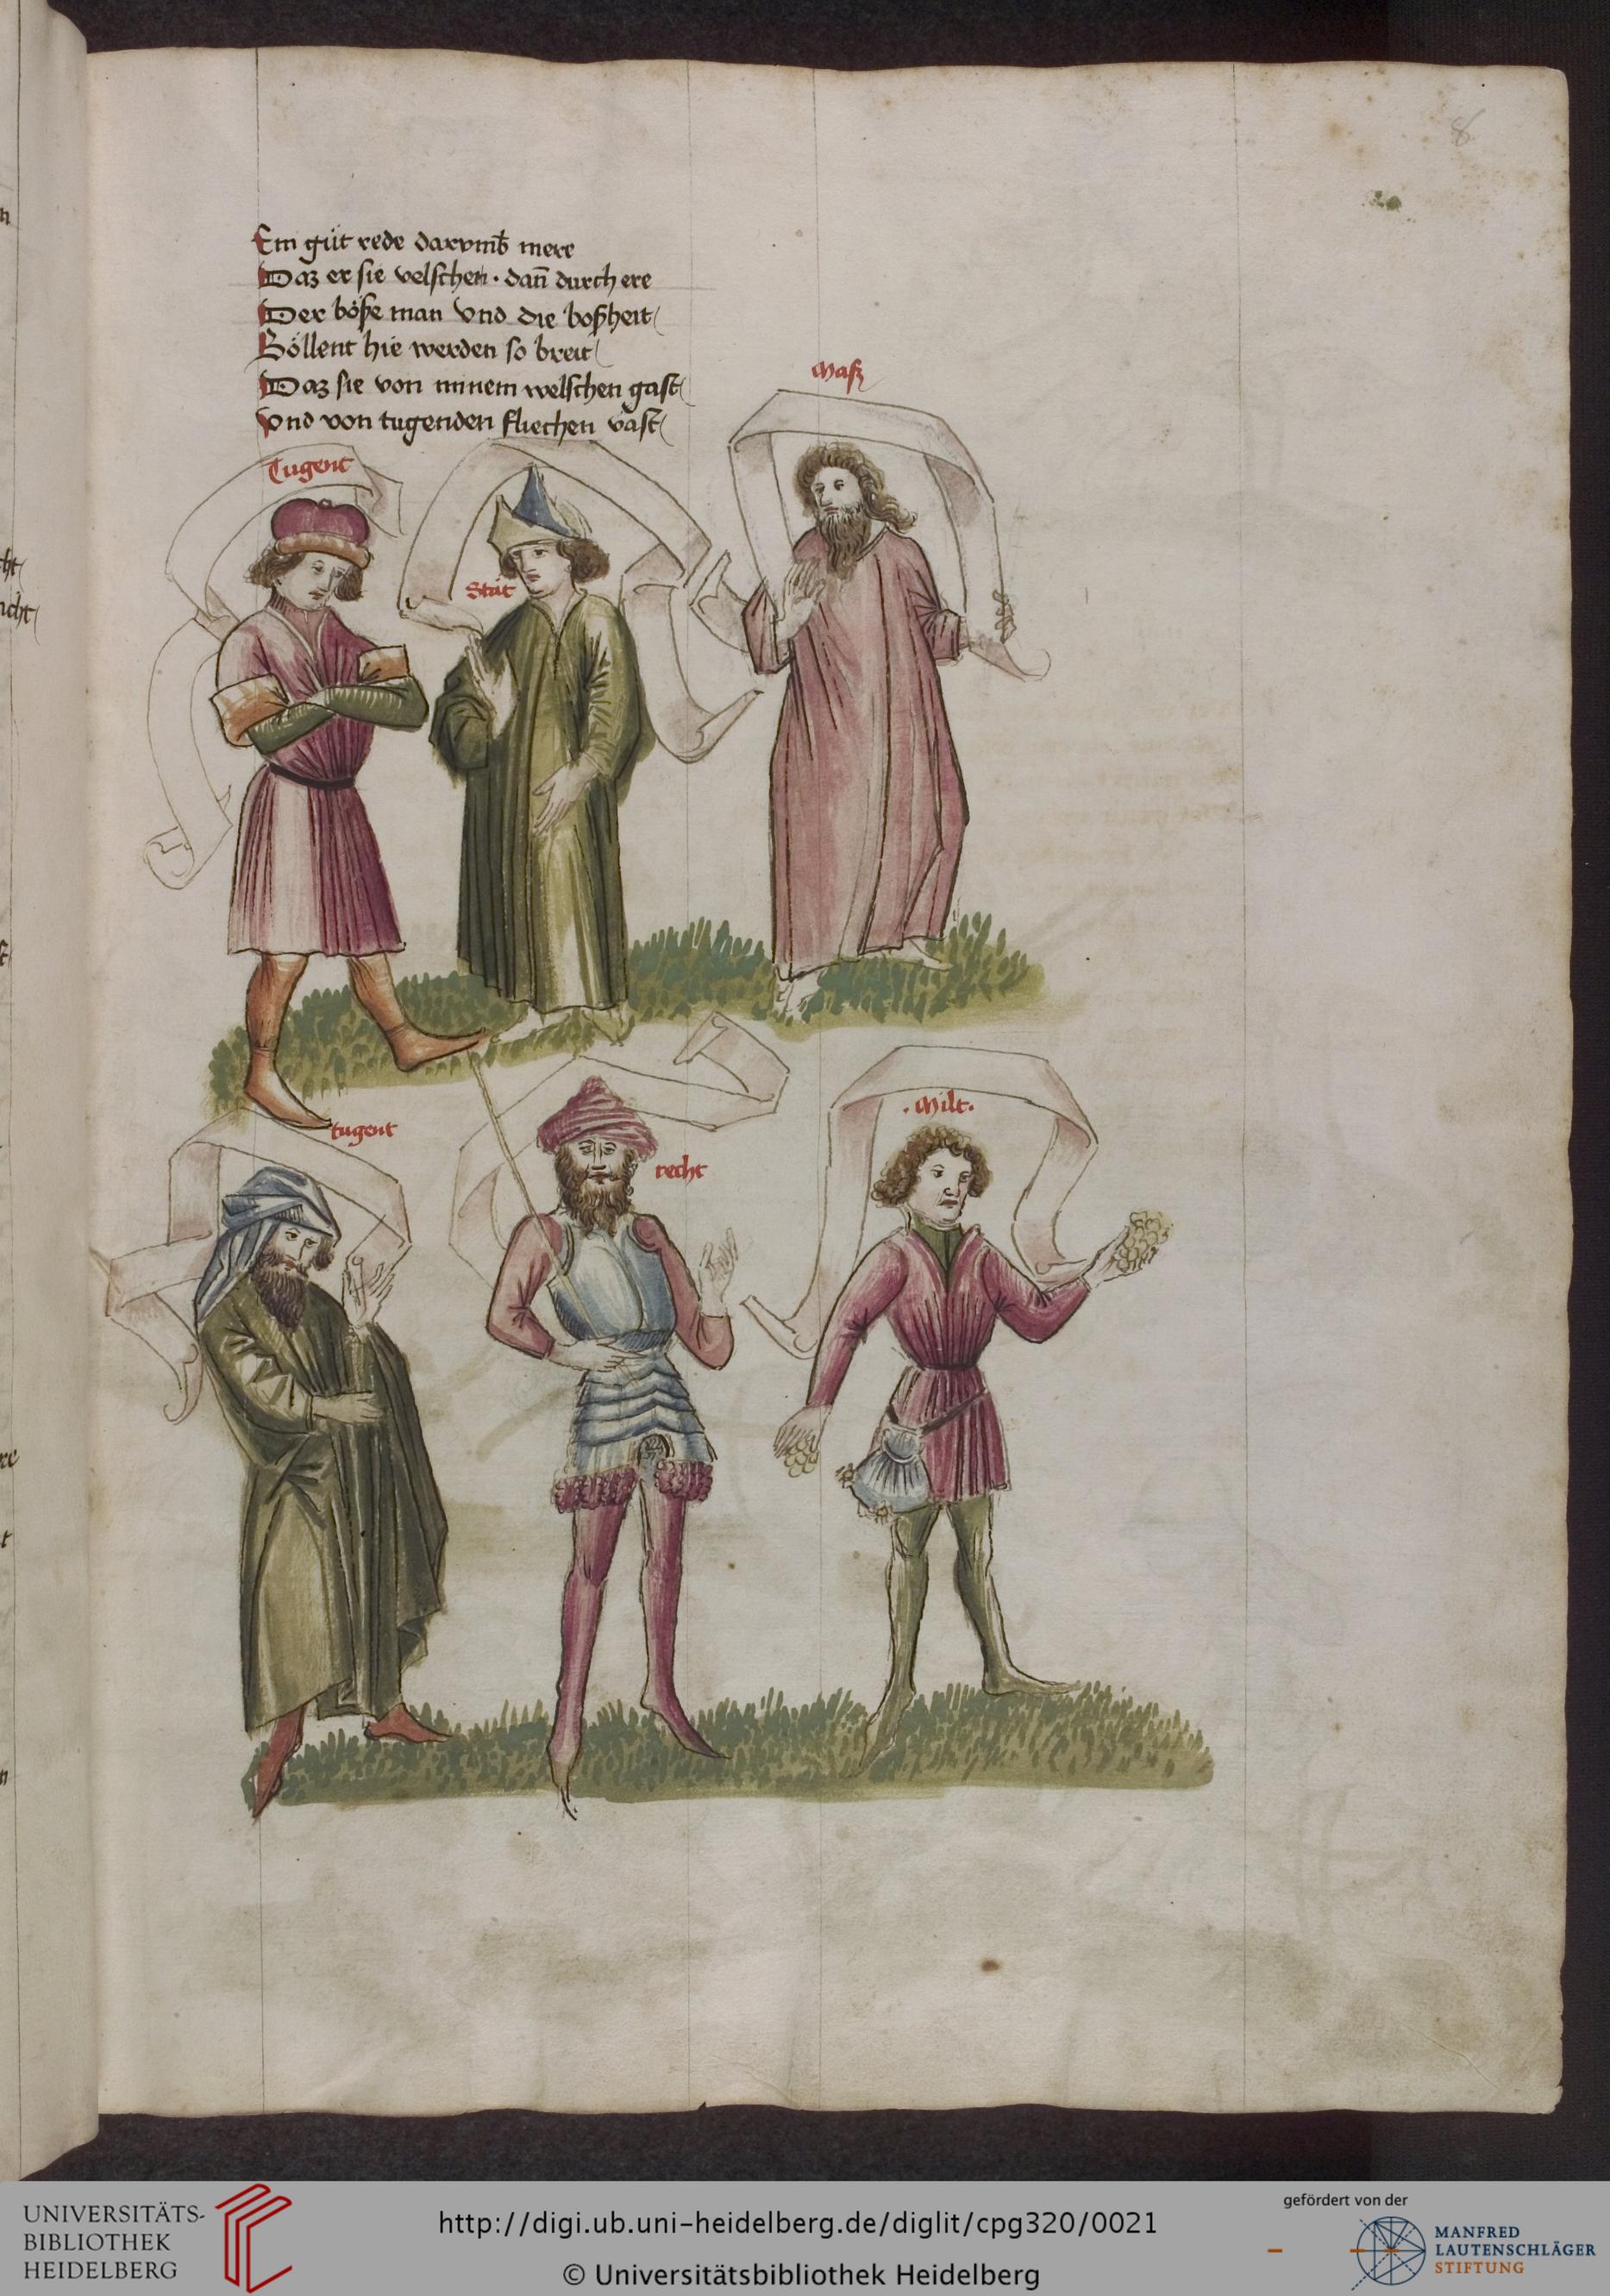 Ein güt rede darvmb mere
Daz er sie velschen · dañ durch ere
Der böße man vnd die boßheit
Söllent hie werden so breit
Daz sie von minem welschen gast
Vnd von tugenden fliechen vast
Maß
Tugent
Stät
tugent
recht
· Milt ·
8
UNIVERSITÄTS-
BIBLIOTHEK
HEIDELBERG
http://digi.ub.uni-heidelberg.de/diglit/cpg320/0021
© Universitätsbibliothek Heidelberg
gefördert von der
MANFRED
LAUTENSCHLÄGER
STIFTUNG